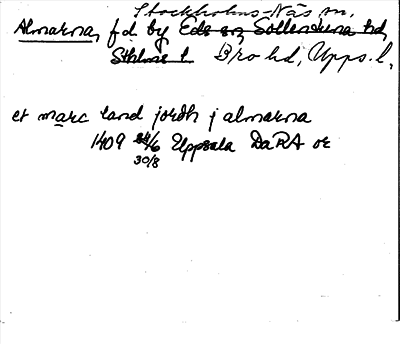 Stockholms-Näs sn,
Almarna, f d by Eds sn, Sollentuna hd,
Sthlms l. Bro hd, Upps. l.
et marc land jordh j almarna
1409 24/6 Uppsala DaRA or
30/8